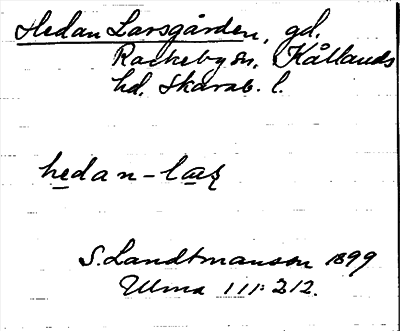 Hedan Larsgården, gd.
Rackeby sn, Kållands
hd, Skarab. l.
hedan-laʂ
S. Landtmanson 1899
Ulma 111:212.